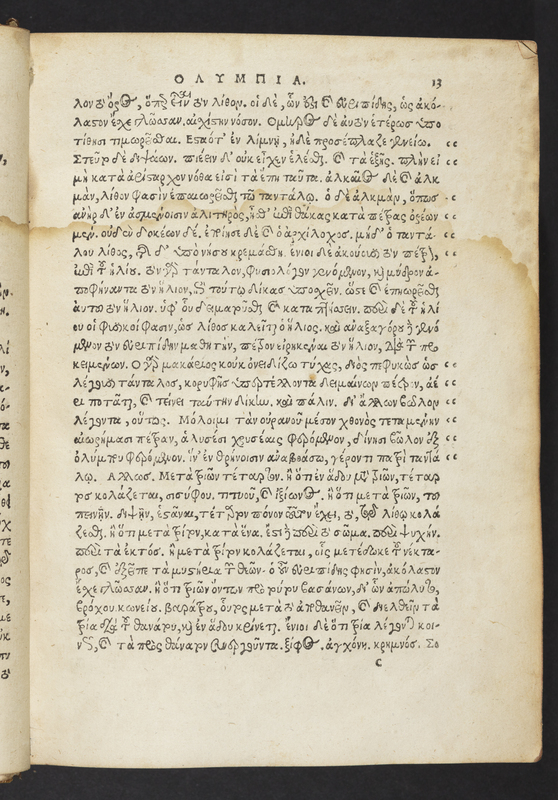 ΟΛΥΜΠΙΑ. 13
λον τ̀ ὄρος, ἐν λίθον. οἱ δὲ, ὧν καὶ εὐριπίδης, ὡς ἀκό-
λαστον ἔσχε γλῶσσαν. αἰσχίστην νόσον. Ὅμηρος δὲ ἀυτὸν ἑτέρως ὑπο
τίθησι τιμωρεῖσθαι. Εσταότ' ἐν λίμνῃ, ἡδὲ προσέπλαζε γενείῳ.
Στεῦτο δὲ διψάων. πιέειν δ' οὐκ εἶχεν ἑλέσθαι. καὶ τὰ ἑξῆς. πλὴν εἰ
μὴ κατὰ ἀρίσταρχον νόθα εἰσὶ τὰ ἔπη ταῦτα. ἀλκαῖος δὲ καὶ ἀλκ
μὰν, λίθον φασὶν ἐπαιωρεῖσθαι τῷ ταντάλῳ. ὁ δὲ ἀλκμὰν, ὅπως
ἀνὴρ δ' ἐν ἀσμένοισιν ἀλιτηρὸς, ἧσθ' ἐπὶ θάκας κατὰ πέτρας ὁρέων
μὲν οὐδὲν δοκέων δέ. ἐχρήσατο δὲ καὶ ὁ ἀρχίλοχος. μηδ' ὁ ταντά-
λου λίθος, τῆς δ' ὑπὲρ νήσου κρεμάσθω. ἔνιοι δὲ ἀκούουσι τὸν πέτρον,
ἐπὶ τοῦ ἡλίου. τὸν γὰρ τάνταλον, φυσιολόγον γενόμενον, καὶ μύδρον ἀ-
ποφήναντα τὸν ἥλιον, ἐπὶ τούτῳ δίκας ὑποσχεῖν. ὥστε καὶ ἐπῃωρεῖσθαι
αὐτῷ τὸν ἥλιον. ὑφ' οὗ δειματοῦσθαι καὶ καταπτήσσειν. περὶ δὲ τοῦ ἡλί
ου οἱ φυσικοί φασιν, ὡς λίθος καλεῖται ὁ ἥλιος. καὶ ἀναξαγόρου γενό
μενον τὸν εὐριπίδην μαθητὴν, πέτρον εἰρηκέναι τὸν ἥλιον, διὰ τῶν προ
κειμένων. Ο γὰρ μακάριος κοὐκ ὀνειδίζω τύχας, διὸς πεφυκὼς ὡς
λέγουσι τάνταλος, κορυφῆς ὑπερτέλλοντα δειμαίνων πέτρον, ἀέ
ρι ποτᾶται, καὶ τίνει ταύτην δίκην. καὶ πάλιν. δι' ἄλλων βῶλον
λέγοντα, οὕτως. Μόλοιμι τὰν οὐρανοῦ μέσον χθονὸς τεταμένην
αἰωρήμασι πέτραν, ἁλύσεσι χρυσέαις φερόμενον, δίνῃσι βῶλον ἐξ
ὀλύμπου φερόμενον. ἵν' ἐν θρήνοισιν ἀναβοάσω, γέροντι πατρὶ ταντά
λῳ. Αλλως. Μετὰ τριῶν τέταρτον. ἢ ὅτι ἐν ᾅδου μετὰ τριῶν, τέταρ
τος κολάζεται, σισύφου. τιτυοῦ, καὶ ἰξίωνος. ἢ ὅτι μετὰ τριῶν, τοῦ
πεινῆν. διψῆν, ἑστάναι, τέταρτον πόνον ἔχει, τὸ λίθῳ κολά
ζεσθαι. ἢ ὅτι μετὰ τρίτον, κατὰ ἕνα. ἔστι περὶ τὸ σῶμα. περὶ ψυχήν.
περὶ τὰ ἐκτός. ἢ μετὰ τρίτον κολάζεται, οἷς μετέδωκε τοῦ νέκτα-
ρος, καὶ ἐξεῖπε τὰ μυστήρια τῶν θεῶν. ὁ γοῦν εὐριπίδης φησὶν, ἀκόλαστον
ἔσχε γλῶσσαν. ἢ ὅτι τριῶν ὄντων προτέρων βασάνων, δι' ὧν ἀπόλυσις,
βρόχου. κωνείου. βαράθρου, οὗτος μετὰ τὸ ἀποθανεῖν, καὶ διελθεῖν τὰ
τρία διὰ τοῦ θανάτου, καὶ ἐν ᾅδου κρίνεται. ἔνιοι δὲ ὅτι τρία λέγουσι κοι-
νῶς, καὶ τὰ πρὸς θάνατον συντελοῦντα. ξίφος. ἀγχόνη. κρημνός. Σο
c